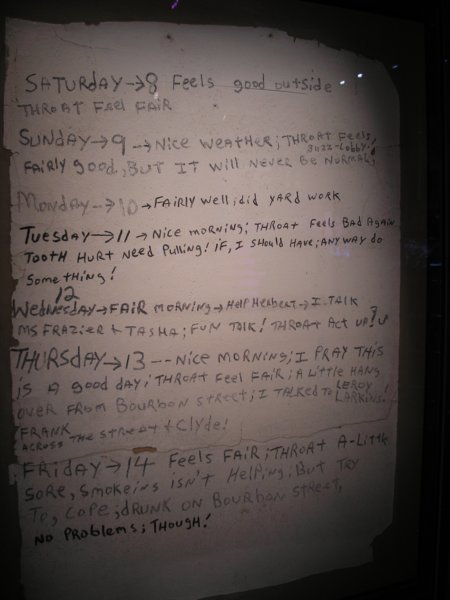 SATURDAY → 8 Feels good outside
THROAT Feel FAIR
SUNDAY → 9 → Nice WEATHER; THROAT Feels,
FAIRly good; BUT IT will NEVER BE NORMAL;
MONDAY → 10 → FAIRly well; did YARD WORK
TUESDAY → 11 → Nice MORNING; THROAT Feels BAD Again
TOOTH HURT Need Pulling! IF, I SHOULD HAVE; ANYWAY do
SomeTHING!
12
WedNesday → FAIR MORNING → Help HERBERT → I TALK
MS FRAZIER & TASHA; FUN TALK! THROAT ACT UP!
THURSDAY → 13 -- Nice MORNING; I PRAY THIS
is A good dAY; THROAT Feel FAIR; A little HANG
OVER FROM BOURBON STREET; I TALKED To LEROY
LARKINS!
FRANK
ACROSS THE STREET & Clyde!
FRIDAY → 14 Feels FAIR; THROAT A-Little
SORE, SMOKEINS ISN'T Helping; BUT TRY
To, COPE; dRUNK ON BOURBON STREET,
NO PROBLEMS; THOUGH!